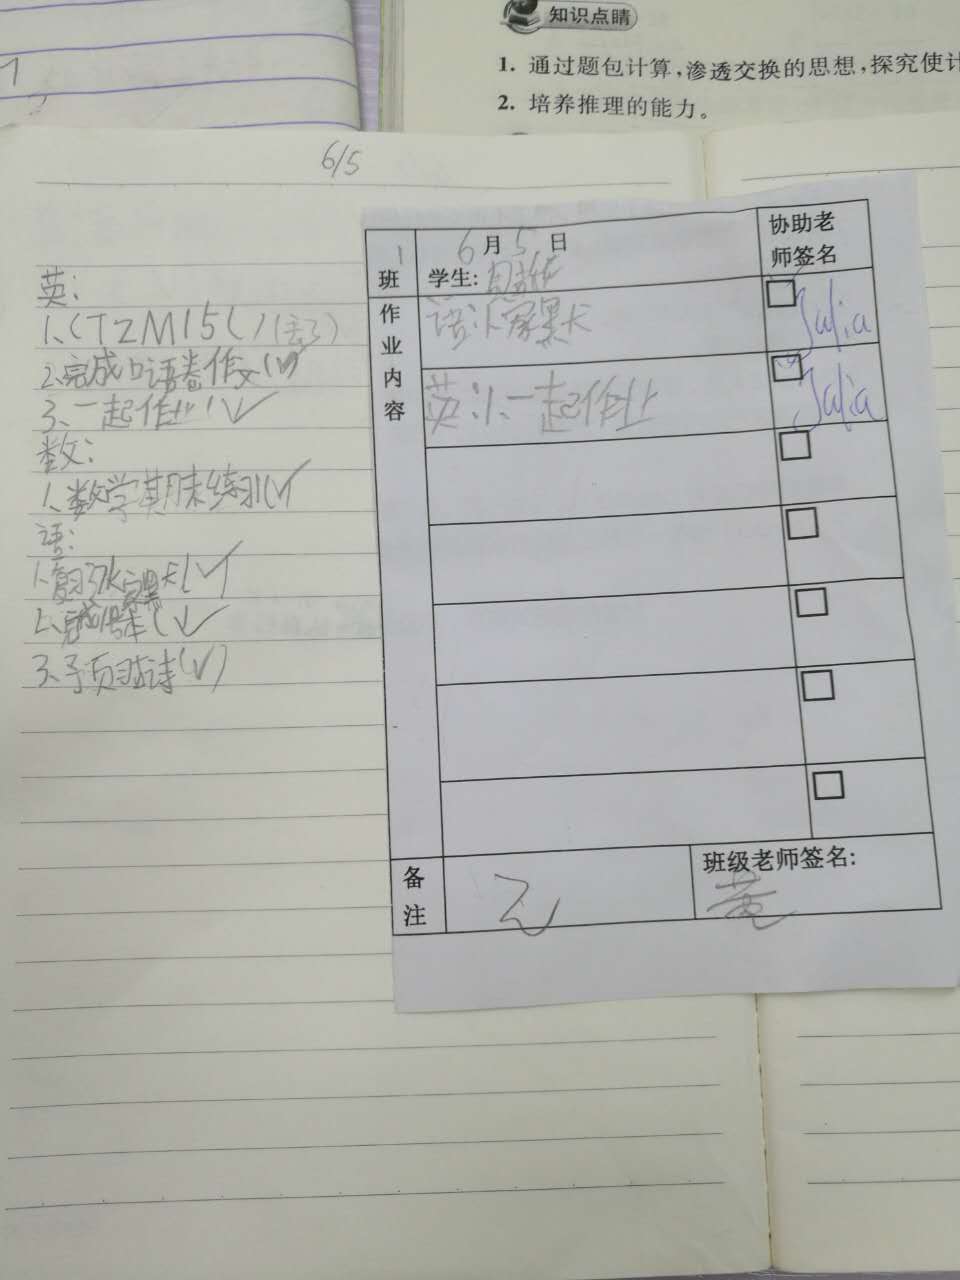 知识点睛
1. 通过题包计算，渗透交换的思想，探究使计
2. 培养推理的能力。
6/5
英：
1.CTZM15( )(丢了)
2.完成口语卷作文(√)
3.一起作业(√
数：
1.数学期末练习(√
语：
1.复习家默
2.完成(√
3.预习古诗(√)
1班
6月5日
学生:
协助老师签名
作业内容
语:1.家默
Julia
英:1.一起作业
Julia
备注
无
班级老师签名:
黄